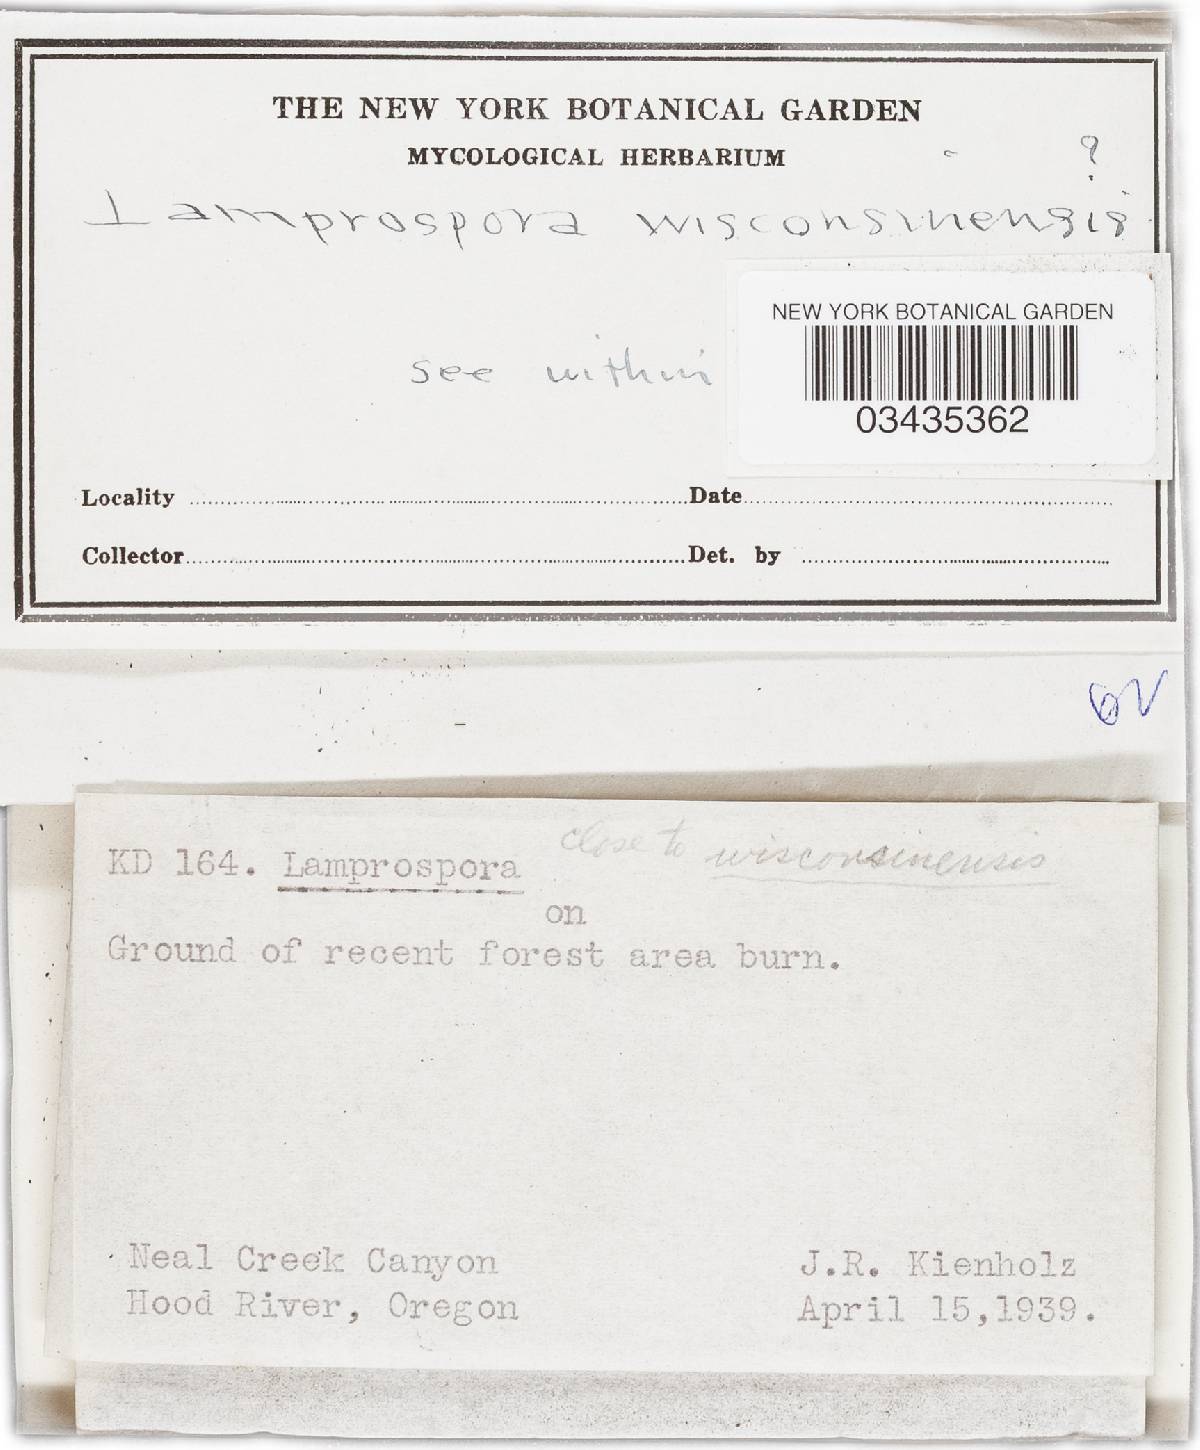 THE NEW YORK BOTANICAL GARDEN
MYCOLOGICAL HERBARIUM
?
Lamprospora wisconsinensis
NEW YORK BOTANICAL GARDEN
03435362
see within
Locality Date
Collector Det. by
KD 164. Lamprospora close to wisconsinensis
on
Ground of recent forest area burn.
Neal Creek Canyon J.R. Kienholz
Hood River, Oregon April 15,1939.